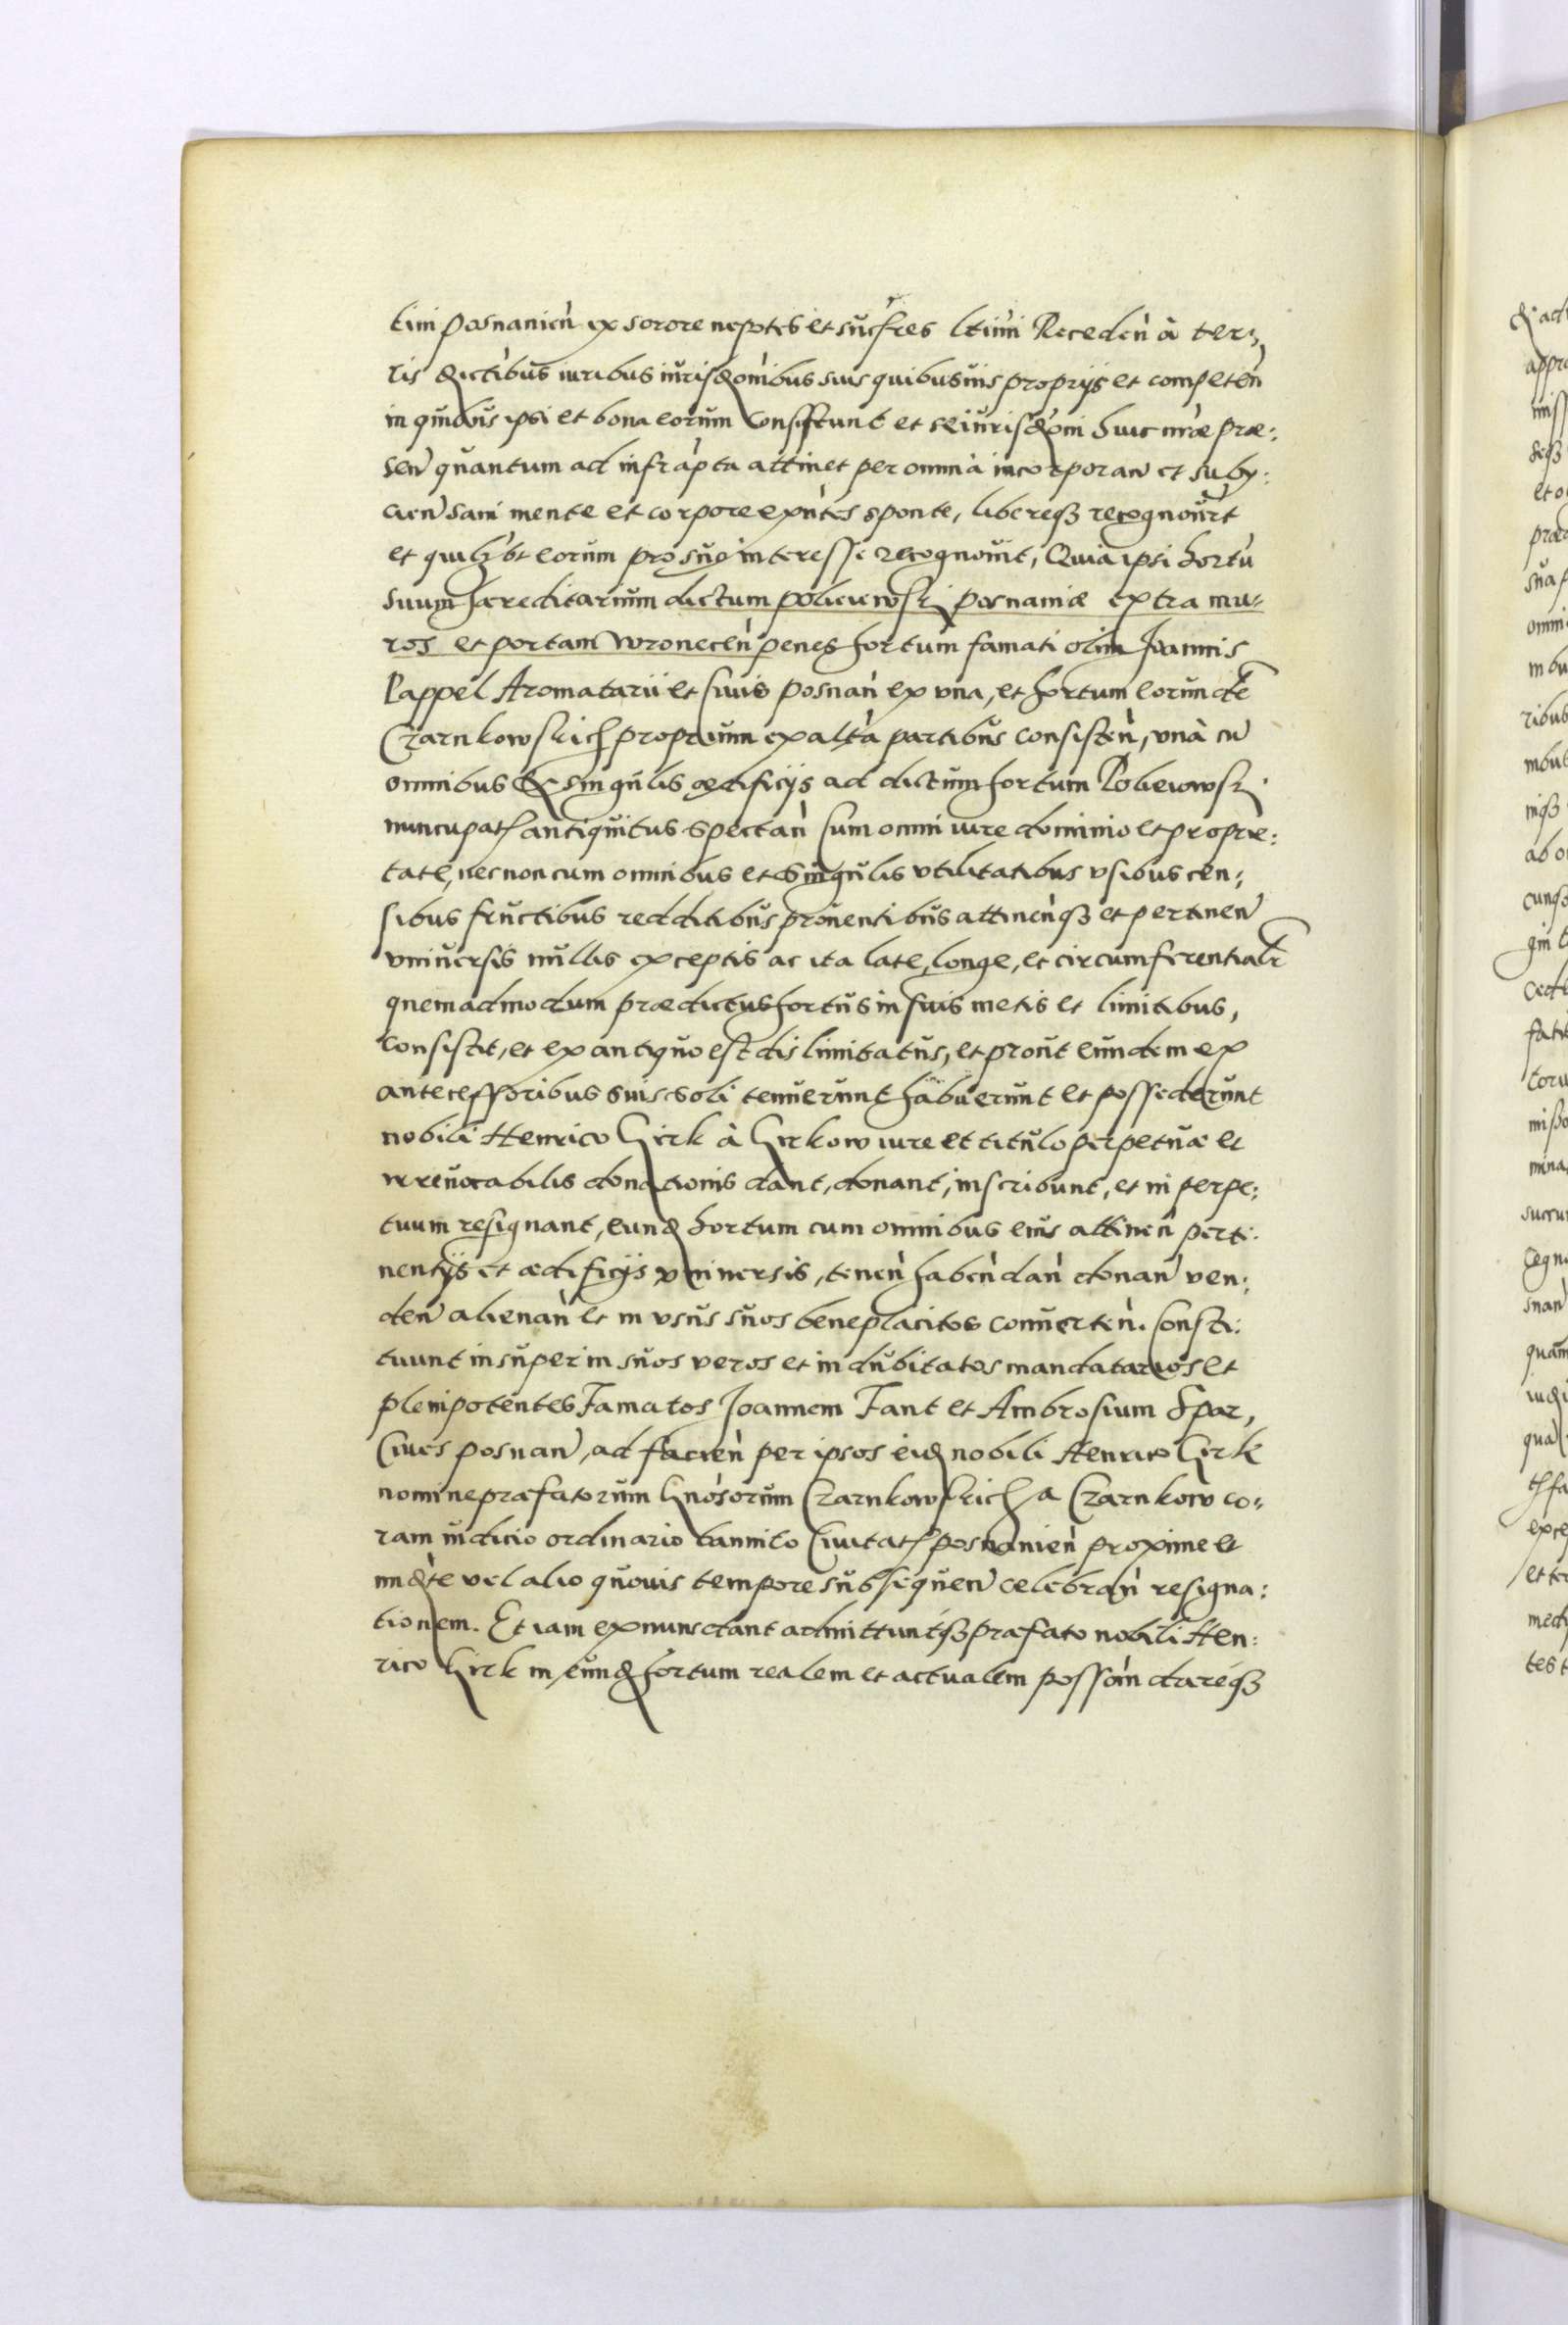 tini posnanień ex sorore nepotes et suc̃sres ltim̃i Receden̄ à ter:
ris districtibus iuribus iurisdo͂nibus suis quibusuis proprijs et competen̄
in quibus ipsi et bona eorum consistunt et se iurisdo͂ni huic nr̃æ præ:
sen̄ quantum ad infrap̃ta attinet per omnia incorporan̄ et suby:
cien̄ sani mente et corpore exñtes sponte, libereqꝫ recognour̃t
et quilꝫbt eorum pro suo interesse recognouit, Quia ipsi hortũ
suum hæreditarium dictum policiewski posnaniæ extra mu-
ros et portam wronecen̄ penes hortum famati olim Joannis
Rappel Aromatarii et Ciuis posnan̄ ex vna, et hortum eorundẽ
Czarnkowskich proprium ex altã partibus consisten̄, vnà cũ
omnibus & singulis ædificijs ad dictum hortum Poliewski
nuncupatꝭ antiquitus spectan̄ Cum omni iure dominio et proprie:
tate, nec non cum omnibus et singulis vtilitatibus vsibus cen:
sibus fructibus redditibus prouentibus attinen̄qꝫ et pertinen̄
vniuersis nullis exceptis ac ita late, longe, et circumferentialr̃
quemadmodum prædictus hortus in suis metis et limitibus,
consistit, et ex antiquo est dislimitatus, et prout eundem ex
antecessoribus suis soli tenuerunt habuerunt et possederunt
nobili Henrico Girk à Girkow iure et titulo perpetuæ et
irreuocabilis donationis dant, donant, inscribunt, et in perpe:
tuum resignant, eund hortum cum omnibus eius attinen̄ perti:
nentijs et ædificijs vniuersis, tenen̄ haben̄ dan̄ donan̄ ven:
den̄ alienan̄ et in vsus suos beneplacitos conuerten̄. Consti:
tuunt insuper in suos veros et indubitatos mandatarios et
plenipotentes Famatos Joannem Fant et Ambrosium Spor,
Ciues posnan̄, ad facien̄ per ipsos eid nobili Henrico Girk
nomine præfatorum Gñosorum Czarnkowskich a Czarnkow co-
ram iudicio ordinario bannito Ciuitatꝭ posnanień proxime et
imdte vel alio quouis tempore subsequen̄ celebran̄ resigna:
tionem. Et iam ex nunc dant admittuntqꝫ præfato nobili Hen:
rico Girk in eund hortum realem et actualem posso͂m dareqꝫ